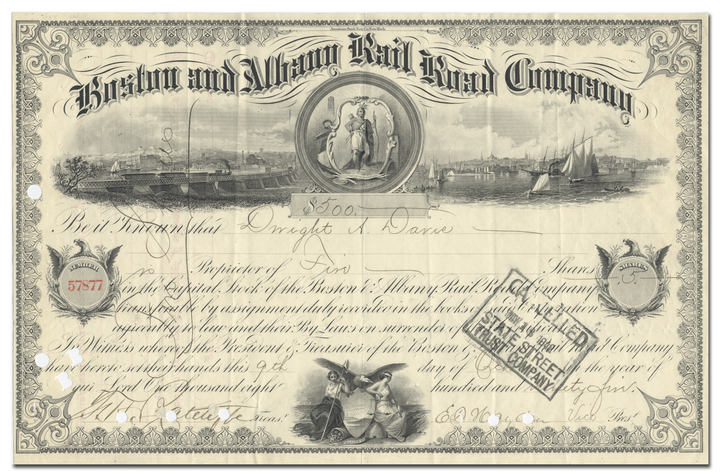 Boston and Albany Rail Road Company
$500.
Be it Known that Dwight A. Davis
NUMBER
57877
Proprietor of Five Shares
SHARES
in the Capital Stock of the Boston & Albany Rail Road Company
transferable by assignment duly recorded in the books of the Corporation
agreeably to law and their By Laws on surrender
In Witness whereof the President & Treasurer of the Boston & Company
have hereto set their hands this 9th day of the year of
our Lord One thousand eight hundred and
CANCELLED
STATE STREET
TRUST COMPANY
Treas. Vice Pres.